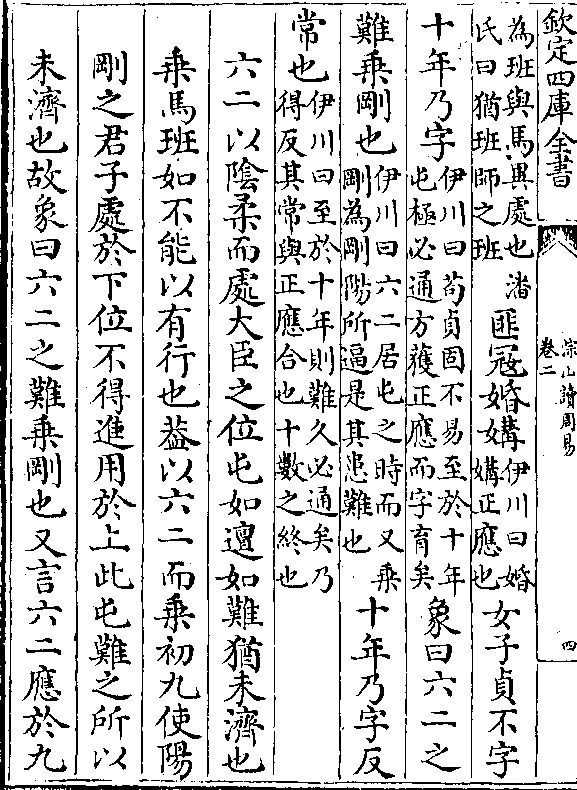 欽定四庫全書
宗山讀周易
卷二
四
為班與馬異處也
氏曰猶班師之班
潽
匪冦婚媾
伊川曰婚
媾正應也
女子貞不字
十年乃字
伊川曰苟貞固不易至於十年
屯極必通方獲正應而字育矣
象曰六二之
難乗剛也
伊川曰六二居屯之時而又乗
剛為剛陽所逼是其患難也
十年乃字反
常也
伊川曰至於十年則難久必通矣乃
得反其常與正應合也十數之終也
六二以陰柔而處大臣之位屯如邅如難猶未濟也
乗馬班如不能以有行也葢以六二而乗初九使陽
剛之君子處於下位不得進用於上此屯難之所以
未濟也故象曰六二之難乗剛也又言六二應於九